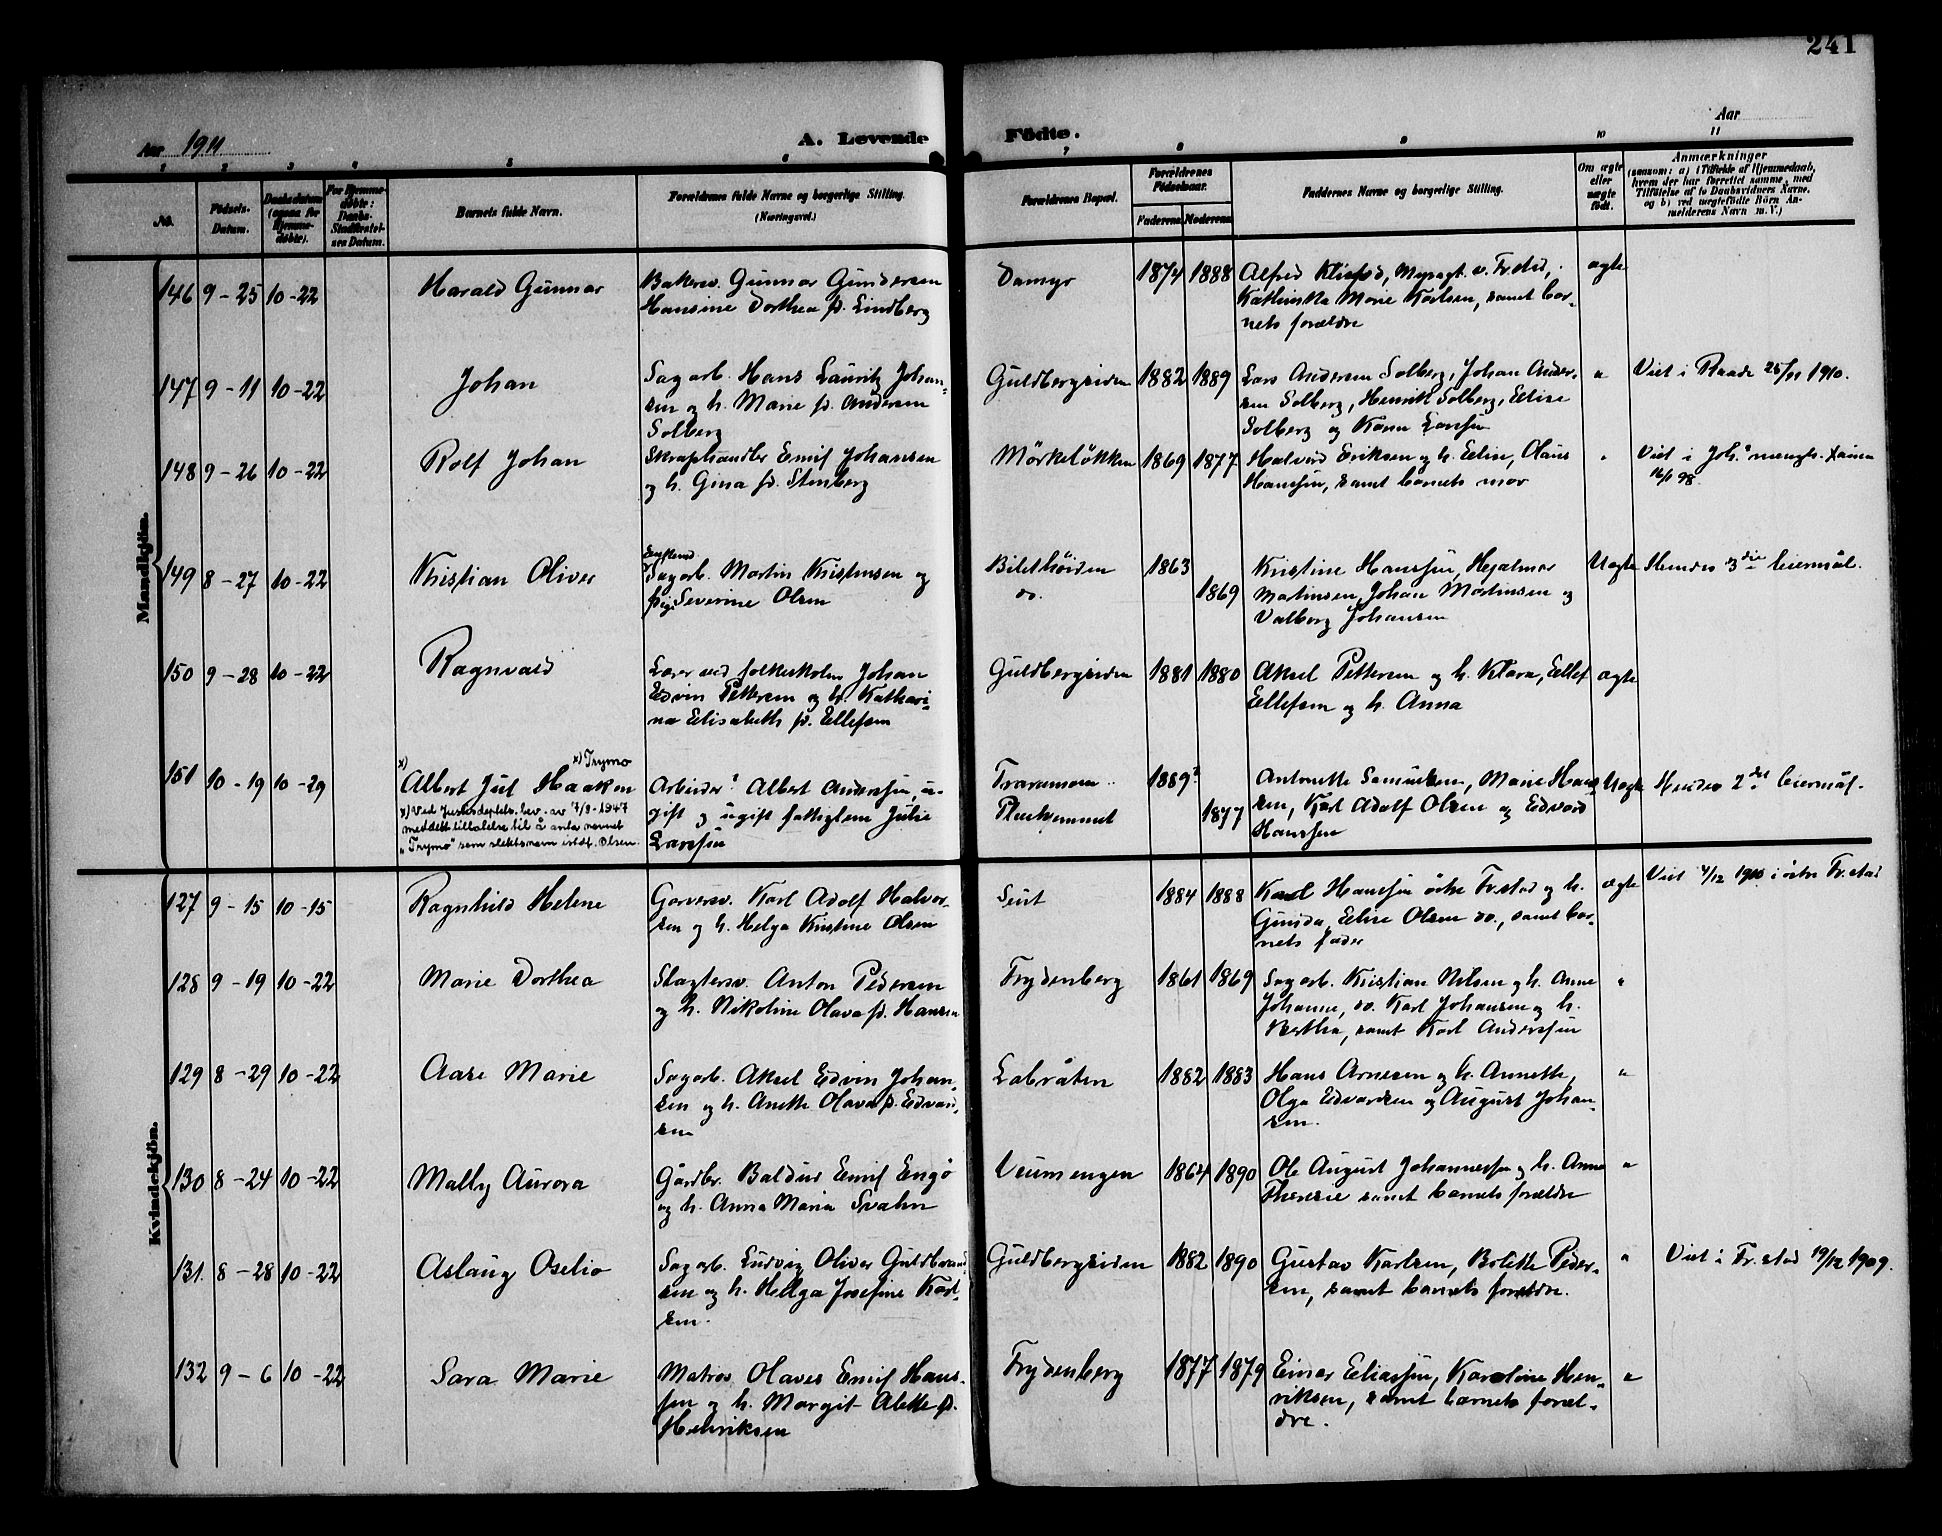 241
Aar 1911
A. Levende
Födte.
Aar
1 2 3 4 5 6 7 8 9 10 11
No.
Födsels-
Datum.
Daabsdatum
(ogsaa for
Hjemme-
døbte).
For Hjemme-
døbte:
Daabs-
Stadfæstel-
ses Datum.
Barnets fulde Navn.
Forældrenes fulde Navne og borgerlige Stilling.
(Næringsvei.)
Forældrenes Bopæl.
Forældrenes
Födselsaar.
Faderens Moderens
Faddernes Navne og borgerlige Stilling.
Om ægte
eller
uægte
født.
Anmærkninger
(saasom: a) i Tilfælde af Hjemmedaab,
hvem der har forrettet samme, med
Tilføielse af to Daabsvidners Navne.
og b) ved uægtefödte Börn An-
melderens Navn m. V.)
Mandkjön.
146 9-25 10-22 Harald Gunnar
Bakersv. Gunnar Gundersen
Hansine Dorthea f. Lindberg
Damyr 1874 1888
Alfred
Kathinka Marie Karlsen, samt bar-
nets forældre
ægte
147 9-11 10-22 Johan
Sagarb. Hans Lauritz Johan-
sen og h. Marie f. Andersen
Solberg
Guldbergsiden 1882 1889
Lars Andersen Solberg, Johan Ander-
sen Solberg, Henrik Solberg, Elise
Solberg og Karen Larssen
" Viet i Raade 25/11 1910.
148 9-26 10-22 Rolf Johan
Skraphandler Emil Johansen
og h. Gina f. Stenberg
Mörkeløkken 1869 1877
Halvord Eriksen og h. Eline, Olaus
Hanssen, samt barnets mor
" Viet i Joh.s menigh.
98.
149 8-27 10-22 Kristian Oliver
Enkemd.
Sagarb. Martin Kristensen og
pige Severine Olsen
Bilethöiden 1863
do. 1869
Kristine Hanssen, Hjalmar
Martinsen, Johan Martinsen og
Valborg Johansen
Uægte Hendes 3die leiermål.
150 9-28 10-22 Ragnvald
Lærer ved folkeskolen Johan
Edvin Pettersen og h. Kathari-
na Elisabeth f. Ellefsen
Guldbergsiden 1881 1880
Aksel Pettersen og h. Klara, Ellef
Ellefsen og h. Anna
ægte
151 10-19 10-29
x) x) Trymo
Albert Jul Haaken
x) Ved Justisdeptets. bev. av 7/9-1947
meddelt tillatelse til å anta navnet
"Trymo" som slektsnavn istdf. Olsen.
Arbeider? Albert Anderssen, u-
gift og ugift fattiglem Julie
Larssen
Traramoen 1889?
Pleiehjemmet 1877
Antonette Samuelsen, Marie Hans-
sen, Karl Adolf Olsen og Edvard
Hanssen
Uægte Hendes 2det leiermål.
Kvindekjön.
127 9-15 10-15 Ragnhild Helene
Garversv. Karl Adolf Halvor-
sen og h. Helga Kristine Olsen
Seut 1884 1888
Karl Hanssen østre Fr.stad og h.
Gunda, Elise Olsen do., samt bar-
nets fader
ægte Viet 4/12 1910 i östre Fr.stad
128 9-19 10-22 Marie Dorthea
Slagtersv. Anton Pedersen
og h. Nikoline Olava f. Hansen
Frydenberg 1861 1869
Sagarb. Kristian Nilsen og h. Anne
Johanne, do. Karl Johansen og h.
Bertha, samt Karl Anderssen
"
129 8-29 10-22 Aase Marie
Sagarb. Aksel Edvin Johan-
sen og h. Anette Olava f. Edvard-
sen
Labråten 1882 1883
Hans Arnesen og h. Annette,
Olga Edvardsen og August Johan-
sen.
"
130 8-24 10-22 Mally Aurora
Gårdbr. Baldur Emil Engø
og h. Anna Maria Svahn
Veumsengen 1864 1890
Ole August Johannessen og h. Anna
Theresie samt barnets forældre
"
131. 8-28 10-22 Aslaug Oselio
Sagarb. Ludvig Oliver Guldbrand-
sen og h. Helga Josefine Karl-
sen.
Guldbergsiden 1882 1890
Gustav Karlsen, Bolette Peder-
sen, samt barnets forældre.
" Viet i Fr.stad 19/12 1909.
132 9-6 10-22 Sara Marie
Matros Olaves Emil Hans-
sen og h. Margit Alette f.
Henriksen
Frydenberg 1877 1879
Einar Eliassen, Karoline Hen-
riksen, samt barnets foræl-
dre.
"